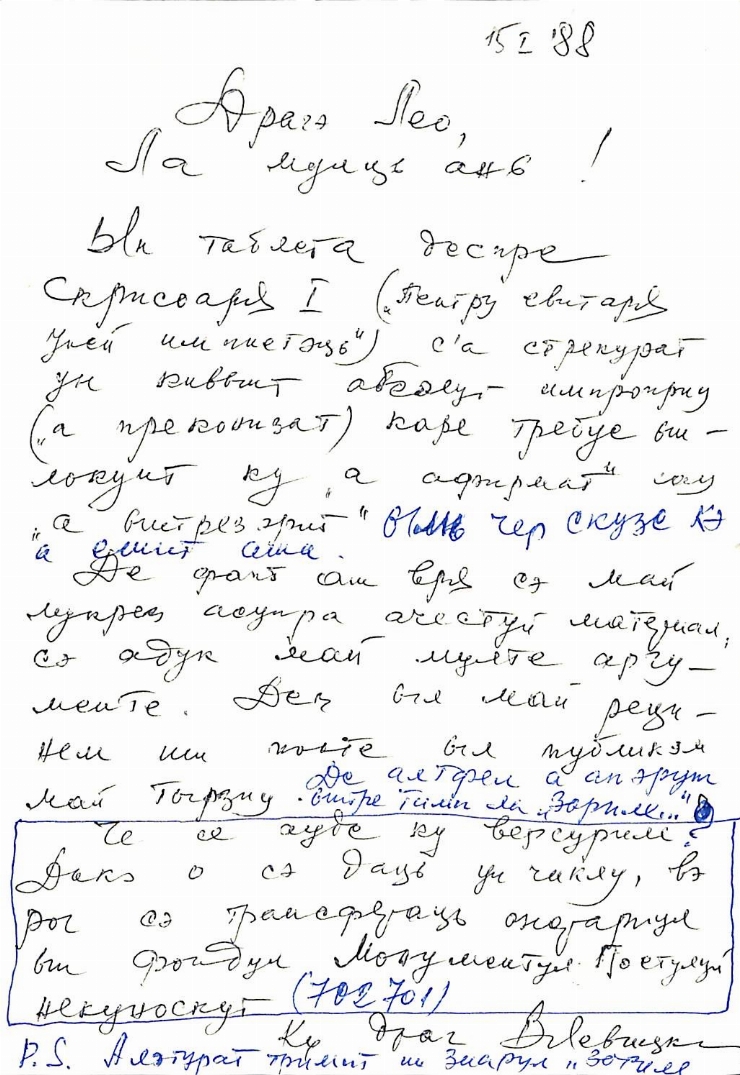 15 I '88
Драгэ Лео,
Ла мулць ань!
Ын таблета деспре
Скрисоаря I („Пентру евитаря
уней импиетэць“) с'а стрекурат
ун кувынт абсолут импроприу
(„а преконизат) каре требуе ын-
локуит ку „а афирмат“ сау
„а ынтрезэрит“ Вэ чер скузе кэ
а ешит аша.
Де фапт ам вря сэ май
лукрез асупра ачестуй материал,
сэ адук май мулте аргу-
менте. Дечь ыл май рецин-
нем ши поате ыл публикэм
май тырзиу. Де алтфел а апэрут
ынтре тимп ла „Зориле...“
Че се ауде ку версуриле?
Дакэ о сэ даць ун чиклу, вэ
рог сэ трансфераць онорариул
ын фондул Монументул Поетулуй
некуноскут (702701)
Ку драг ВЛевицки
P.S. Алэтурат тримит ши зиарул „Зориле